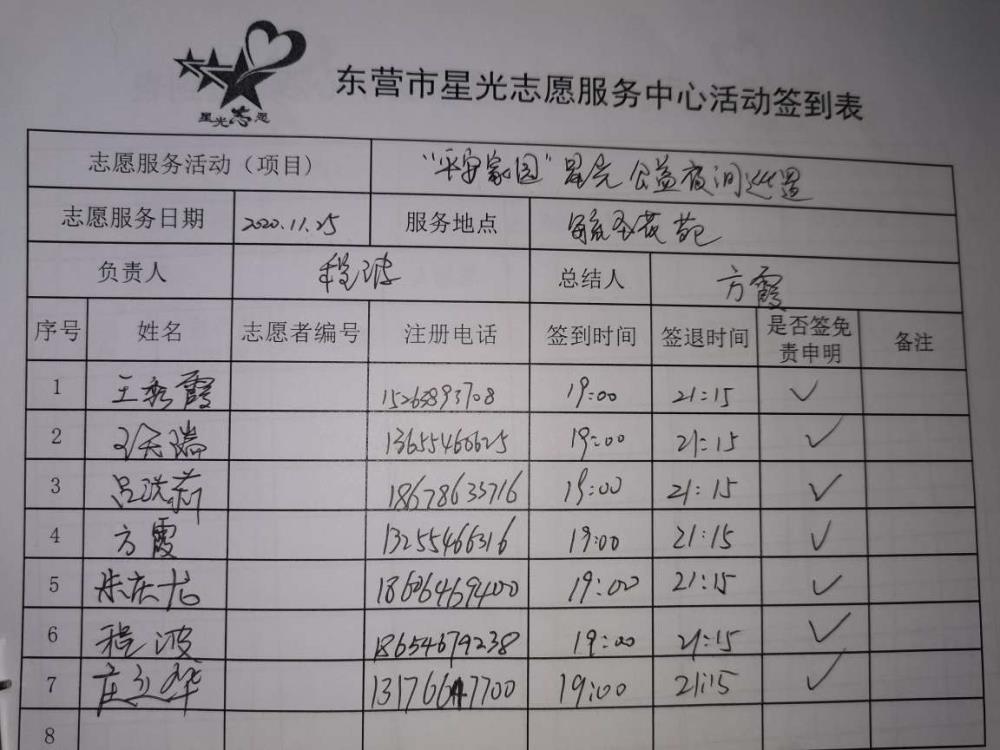 星光志愿
东营市星光志愿服务中心活动签到表
志愿服务活动（项目） “平安家园”星光公益夜间巡逻
志愿服务日期 2020.11.25 服务地点 花苑
负责人 程波 总结人 方霞
序号 姓名 志愿者编号 注册电话 签到时间 签退时间 是否签免责申明 备注
1 王秀霞 15265893708 19:00 21:15 ✓
2 瑞 13655460625 19:00 21:15 ✓
3 吕洪莉 18678633716 19:00 21:15 ✓
4 方霞 13255466316 19:00 21:15 ✓
5 朱庆龙 19:00 21:15 ✓
6 程波 18654679238 19:00 21:15 ✓
7 庄立华 13176647700 19:00 21:15 ✓
8